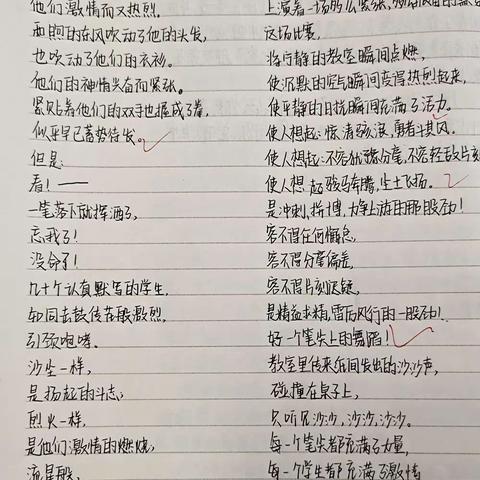 他们激情而又热烈。
而照的东风吹动了他的头发,
也吹动了他们的衣衫。
他们的神情兴奋而紧张。
紧贴着他们的双手也握成了拳,
似乎早已蓄势待发。
但是:
看!——
一笔落下就挥洒了,
忘我了!
没命了!
几十个认真默写的学生,
如同击鼓传在般激烈,
引颈咆哮。
沙尘一样,
是扬起的斗志;
烈火一样,
是他们激情的燃烧;
流星般,
上演着一场
这场比赛,
将宁静的教室瞬间点燃,
使沉默的空气瞬间变得热烈起来,
使平静的日执瞬间充满了活力。
使人想起:惊涛骇浪,勇者斗其风。
使人想起:不容犹豫分毫,不容轻敌片刻
使人想起骏马奔腾,尘土飞扬。
是冲刺,拼搏,力争上游的那股劲!
容不得任何懈怠,
容不得分毫偏差,
容不得片刻迟疑,
是精益求精,雷厉风行的一股劲!
好一个笔尖上的舞蹈!
教室里传来纸间发出的沙沙声,
碰撞在桌子上,
只听见沙沙,沙沙,沙沙。
每一个笔尖都充满了力量,
每一个学生都充满了激情